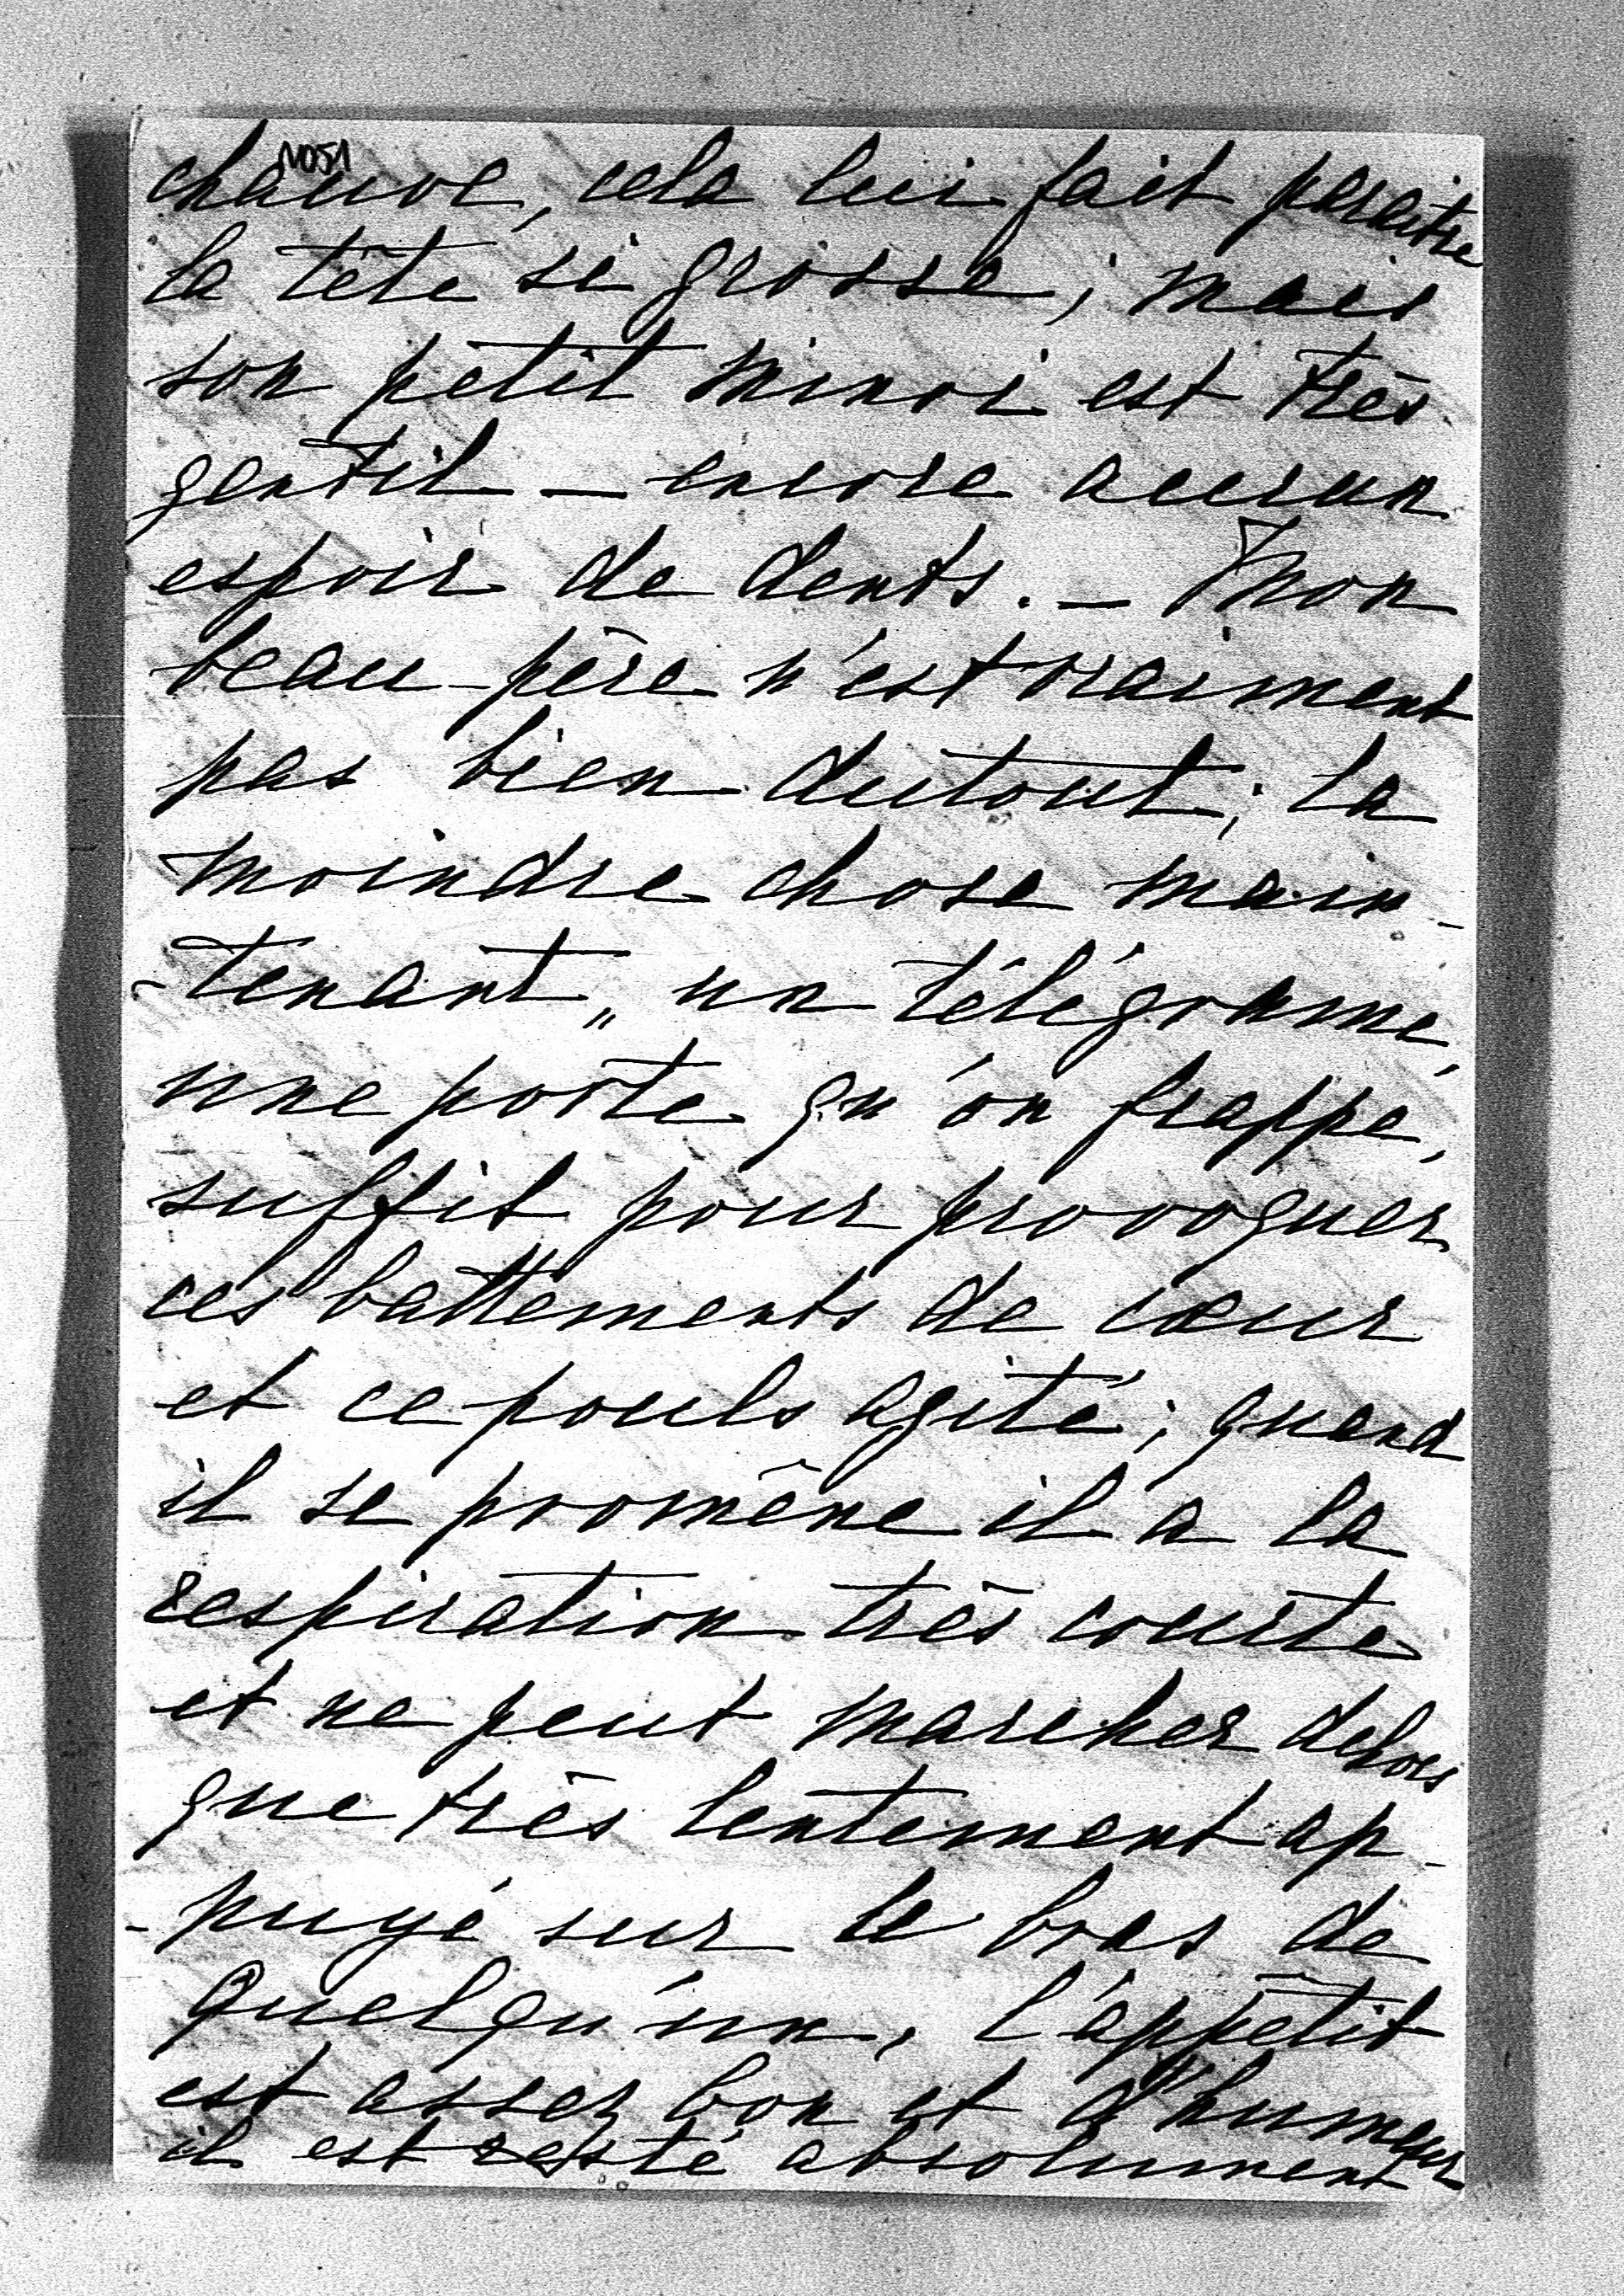 1051
chauve, cela lui fait paraitre
la tête si grosse; mais
son petit minoi est très
gentil — encore aucun
espoir de dents. — Mon
beau-père n'est vraiment
pas bien dutout; la
moindre chose main-
-tenant,, un télégramme,
une porte qu'on frappe,
suffit pour provoquer
ces battements de cœur
et ce pouls agité; quand
il se promène il a la
respiration très courte
et ne peut marcher dehors
que très lentement ap-
-puyé sur le bras de
quelqu'un, l'appétit
est assez bon et d'humeur
il est resté absolument